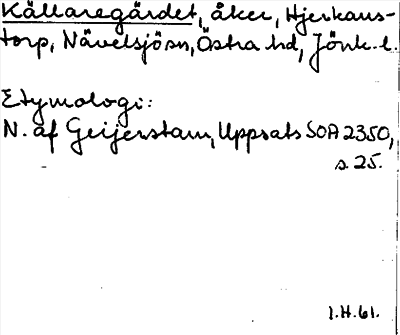 Källaregärdet, åker, Hjerkaus-
torp, Nävelsjösn, Östra hd, Jönk. l.
Etymologi:
N. af Geijerstam, Uppsats SOA 2350,
s. 25.
1.H.61.